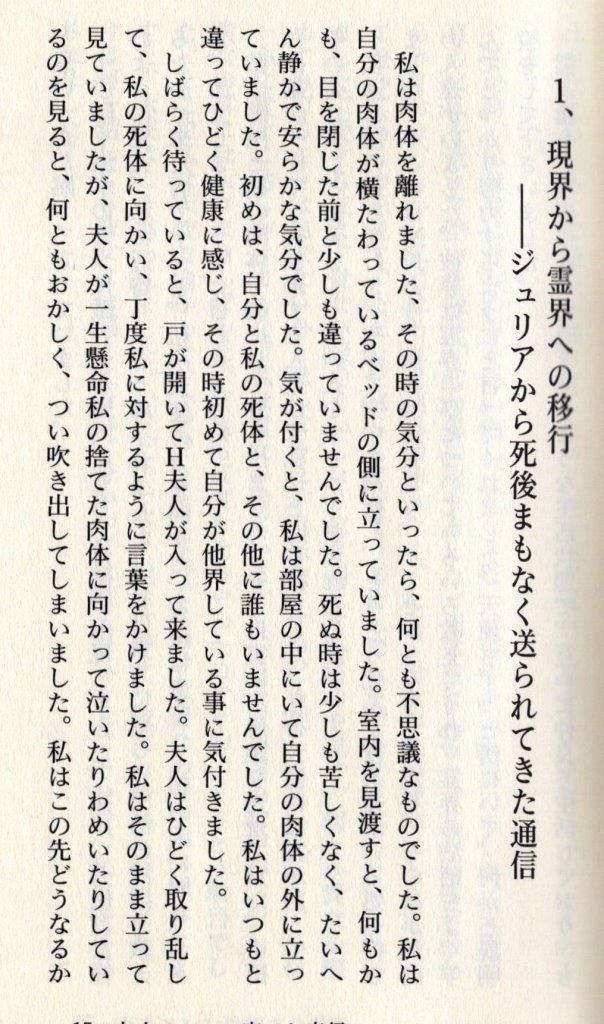 1、現界から霊界への移行
――ジュリアから死後まもなく送られてきた通信
私は肉体を離れました、その時の気分といったら、何とも不思議なものでした。私は
自分の肉体が横たわっているベッドの側に立っていました。室内を見渡すと、何もか
も、目を閉じた前と少しも違っていませんでした。死ぬ時は少しも苦しくなく、たいへ
ん静かで安らかな気分でした。気が付くと、私は部屋の中にいて自分の肉体の外に立っ
ていました。初めは、自分と私の死体と、その他に誰もいませんでした。私はいつもと
違ってひどく健康に感じ、その時初めて自分が他界している事に気付きました。
しばらく待っていると、戸が開いてH夫人が入って来ました。夫人はひどく取り乱し
て、私の死体に向かい、丁度私に対するように言葉をかけました。私はそのまま立って
見ていましたが、夫人が一生懸命私の捨てた肉体に向かって泣いたりわめいたりしてい
るのを見ると、何ともおかしく、つい吹き出してしまいました。私はこの先どうなるか